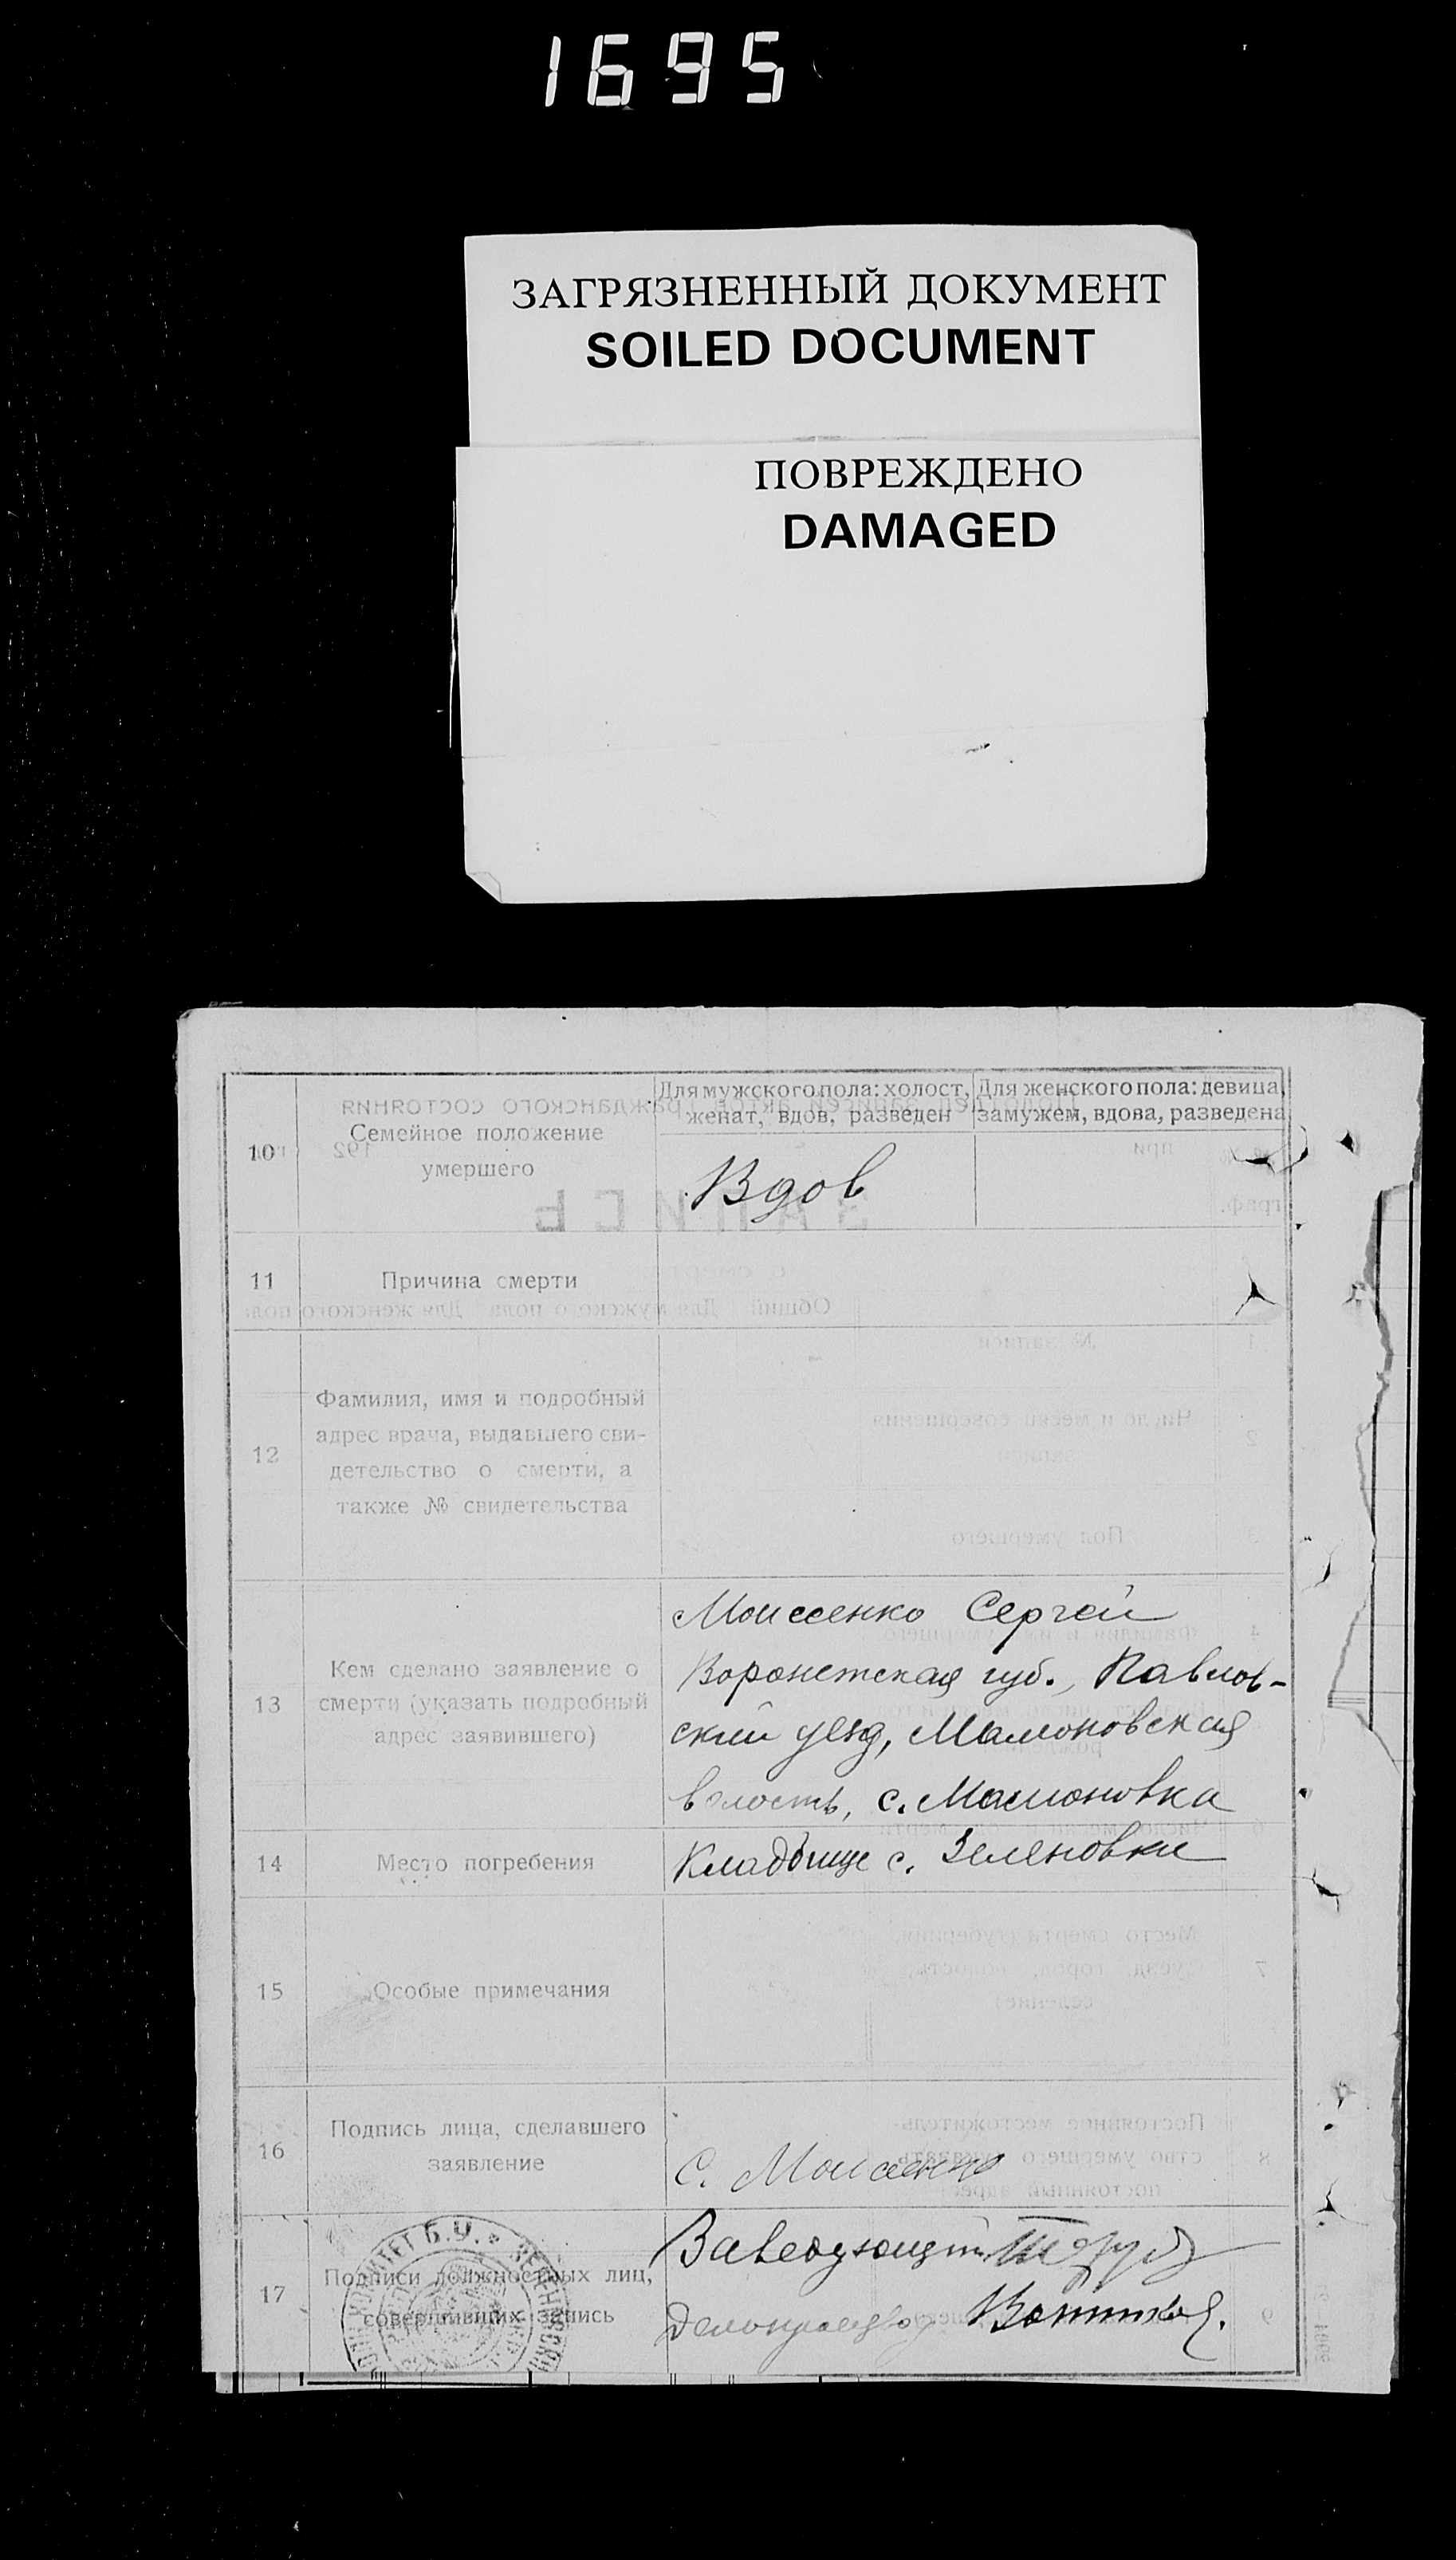 1695
ЗАГРЯЗНЕННЫЙ ДОКУМЕНТ
SOILED DOCUMENT
ПОВРЕЖДЕНО
DAMAGED
10
Семейное положение
умершего
Для мужского пола: холост,
женат, вдов, разведен
Для женского пола: девица,
замужем, вдова, разведена
Вдов
11
Причина смерти
12
Фамилия, имя и подробный
адрес врача, выдавшего сви-
детельство о смерти, а
также № свидетельства
13
Кем сделано заявление о
смерти (указать подробный
адрес заявившего)
Моисеенко Сергей
Воронежская губ., Павлов-
ский уезд, Мамоновская
волость, с. Мамоновка
14
Место погребения
Кладбище с. Зеленовки
15
Особые примечания
16
Подпись лица, сделавшего
заявление
С. Моисеенко
17
Подписи должностных лиц,
совершивших запись
Заведующий